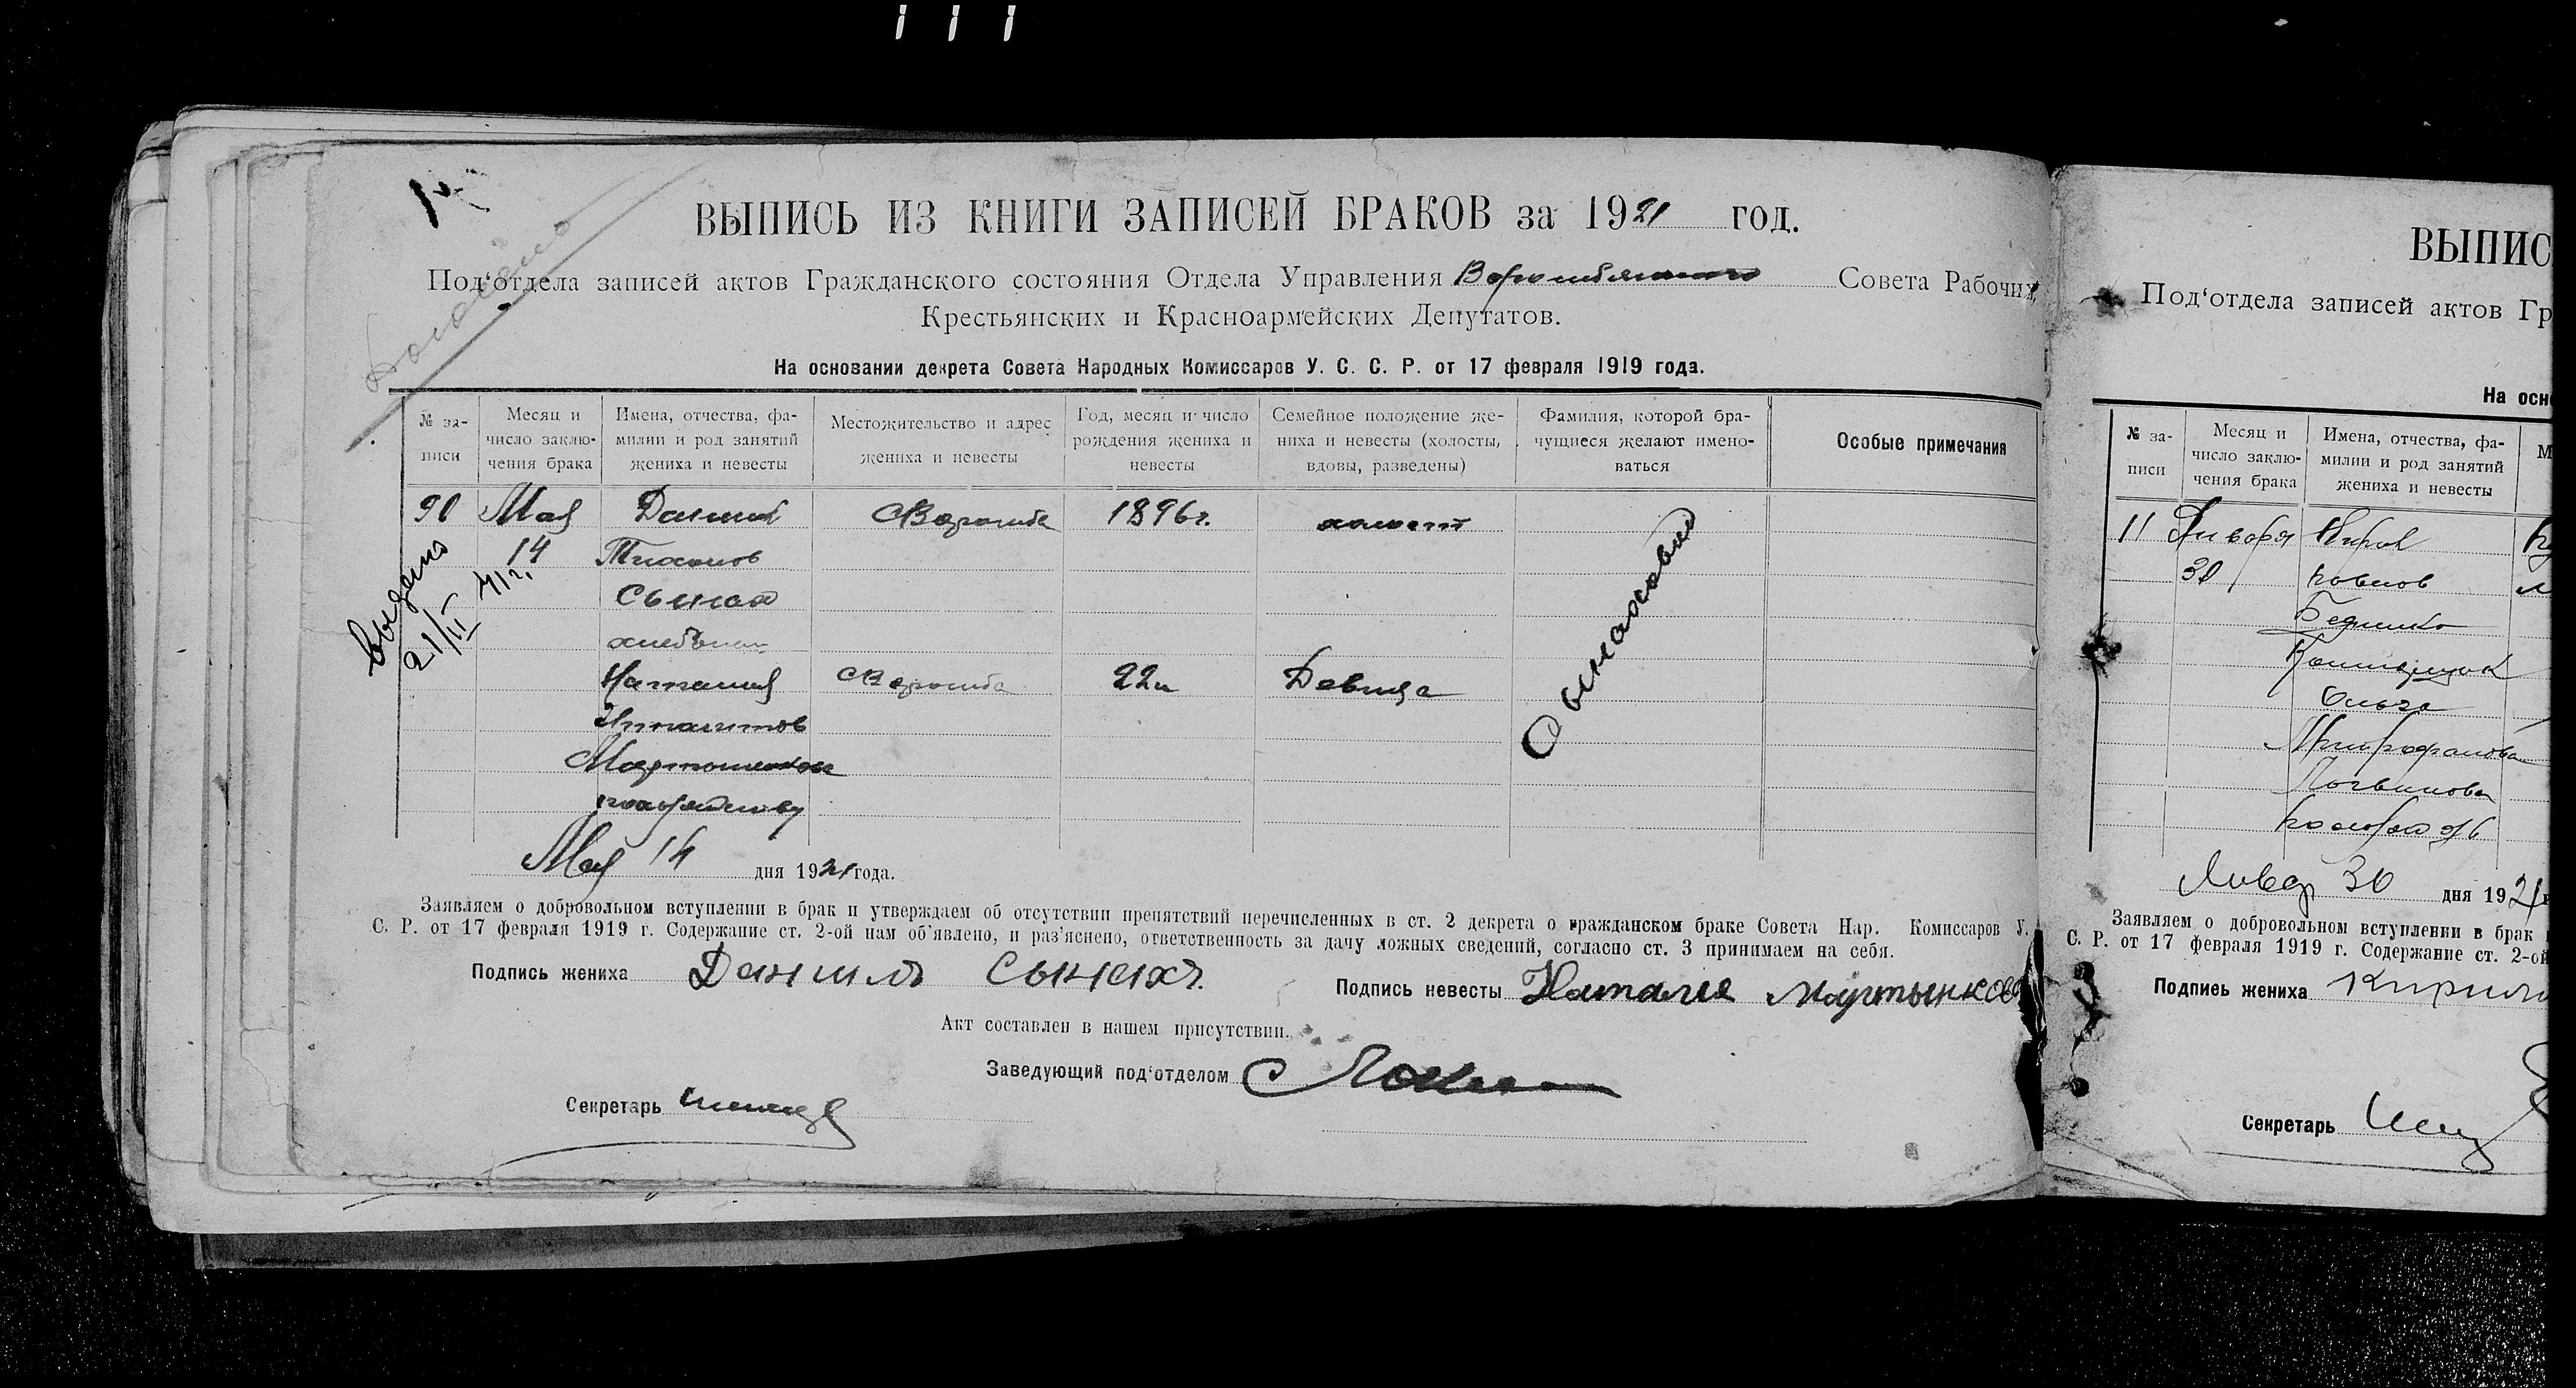 ВЫПИСЬ ИЗ КНИГИ ЗАПИСЕЙ БРАКОВ за 1921 год.
Под‘отдела записей актов Гражданского состояния Отдела Управления Совета Рабочих,
Крестьянских и Красноармейских Депутатов.
На основании декрета Совета Народных Комиссаров У. С. С. Р. от 17 февраля 1919 года.
№ за-
писи
Месяц и
число заклю-
чения брака
Имена, отчества, фа-
милии и род занятий
жениха и невесты
Местожительство и адрес
жениха и невесты
Год, месяц и число
рождения жениха и
невесты
Семейное положение же-
ниха и невесты (холосты,
вдовы, разведены)
Фамилия, которой бра-
чущиеся желают имено-
ваться
Особые примечания
90 Мая Даниил с Ворожба 1896 г. холост
14 Тихонов
Сынах
Наталия с Ворожба 22 л Девица
Ипполитов
выдано
21/II 41 г.
Мая 14 дня 1921 года.
Заявляем о добровольном вступлении в брак и утверждаем об отсутствии препятствий перечисленных в ст. 2 декрета о гражданском браке Совета Нар. Комиссаров У.
С. Р. от 17 февраля 1919 г. Содержание ст. 2-ой нам об‘явлено, и раз‘яснено, ответственность за дачу ложных сведений, согласно ст. 3 принимаем на себя.
Подпись жениха Данилъ Сынахъ.
Подпись невесты Наталия Мартынкова
Акт составлен в нашем присутствии.
Заведующий под‘отделом
Секретарь
ВЫПИС
Под‘отдела записей актов Гр
На осн
№ за-
писи
Месяц и
число заклю-
чения брака
Имена, отчества, фа-
милии и род занятий
жениха и невесты
М
11 Января Кирил
30 Павлов
Ольга
Митрофанова
Январ 30 дня 1921
Заявляем о добровольном вступлении в брак
С. Р. от 17 февраля 1919 г. Содержание ст. 2-ой
Подпись жениха Кирило
Секретарь